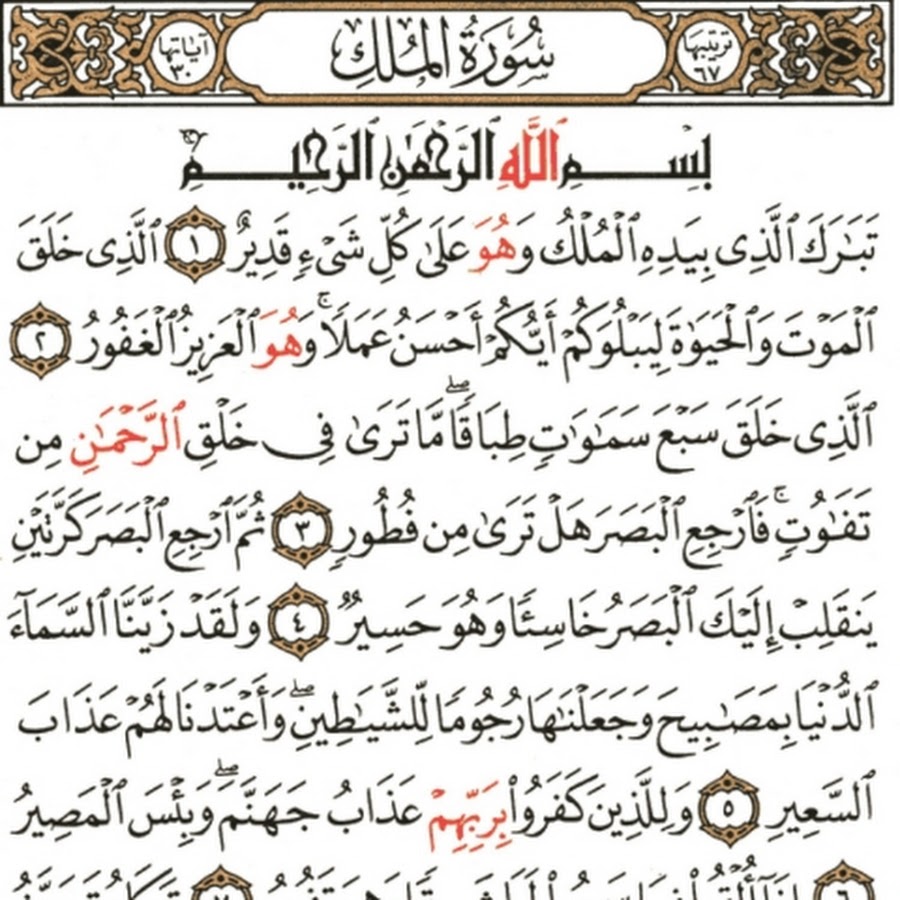 ترتيبها ٦٧
سُورَةُ المُلكِ
آياتها ٣٠
بِسْمِ ٱللَّهِ ٱلرَّحْمَٰنِ ٱلرَّحِيمِ
تَبَٰرَكَ ٱلَّذِى بِيَدِهِ ٱلْمُلْكُ وَهُوَ عَلَىٰ كُلِّ شَىْءٍ قَدِيرٌ ١ ٱلَّذِى خَلَقَ
ٱلْمَوْتَ وَٱلْحَيَوٰةَ لِيَبْلُوَكُمْ أَيُّكُمْ أَحْسَنُ عَمَلًا ۚ وَهُوَ ٱلْعَزِيزُ ٱلْغَفُورُ ٢
ٱلَّذِى خَلَقَ سَبْعَ سَمَٰوَٰتٍ طِبَاقًا ۖ مَّا تَرَىٰ فِى خَلْقِ ٱلرَّحْمَٰنِ مِن
تَفَٰوُتٍ ۚ فَٱرْجِعِ ٱلْبَصَرَ هَلْ تَرَىٰ مِن فُطُورٍ ٣ ثُمَّ ٱرْجِعِ ٱلْبَصَرَ كَرَّتَيْنِ
يَنقَلِبْ إِلَيْكَ ٱلْبَصَرُ خَاسِئًا وَهُوَ حَسِيرٌ ٤ وَلَقَدْ زَيَّنَّا ٱلسَّمَآءَ
ٱلدُّنْيَا بِمَصَٰبِيحَ وَجَعَلْنَٰهَا رُجُومًا لِّلشَّيَٰطِينِ ۖ وَأَعْتَدْنَا لَهُمْ عَذَابَ
ٱلسَّعِيرِ ٥ وَلِلَّذِينَ كَفَرُوا۟ بِرَبِّهِمْ عَذَابُ جَهَنَّمَ ۖ وَبِئْسَ ٱلْمَصِيرُ